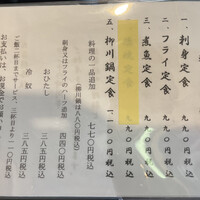 一、刺身定食 九九〇円税込
二、フライ定食 九九〇円税込
三、煮魚定食 九九〇円税込
九九〇円税込
五、柳川鍋定食 一一〇〇円税込
料理の一品追加 七七〇円税込
(柳川鍋は八八〇円税込)
刺身又はフライのハーフ追加 四四〇円税込
おひたし 三八五円税込
冷奴 三八五円税込
ご飯二杯目までサービス、三杯目より一一〇円税込
お支払いは、お現金でお願い